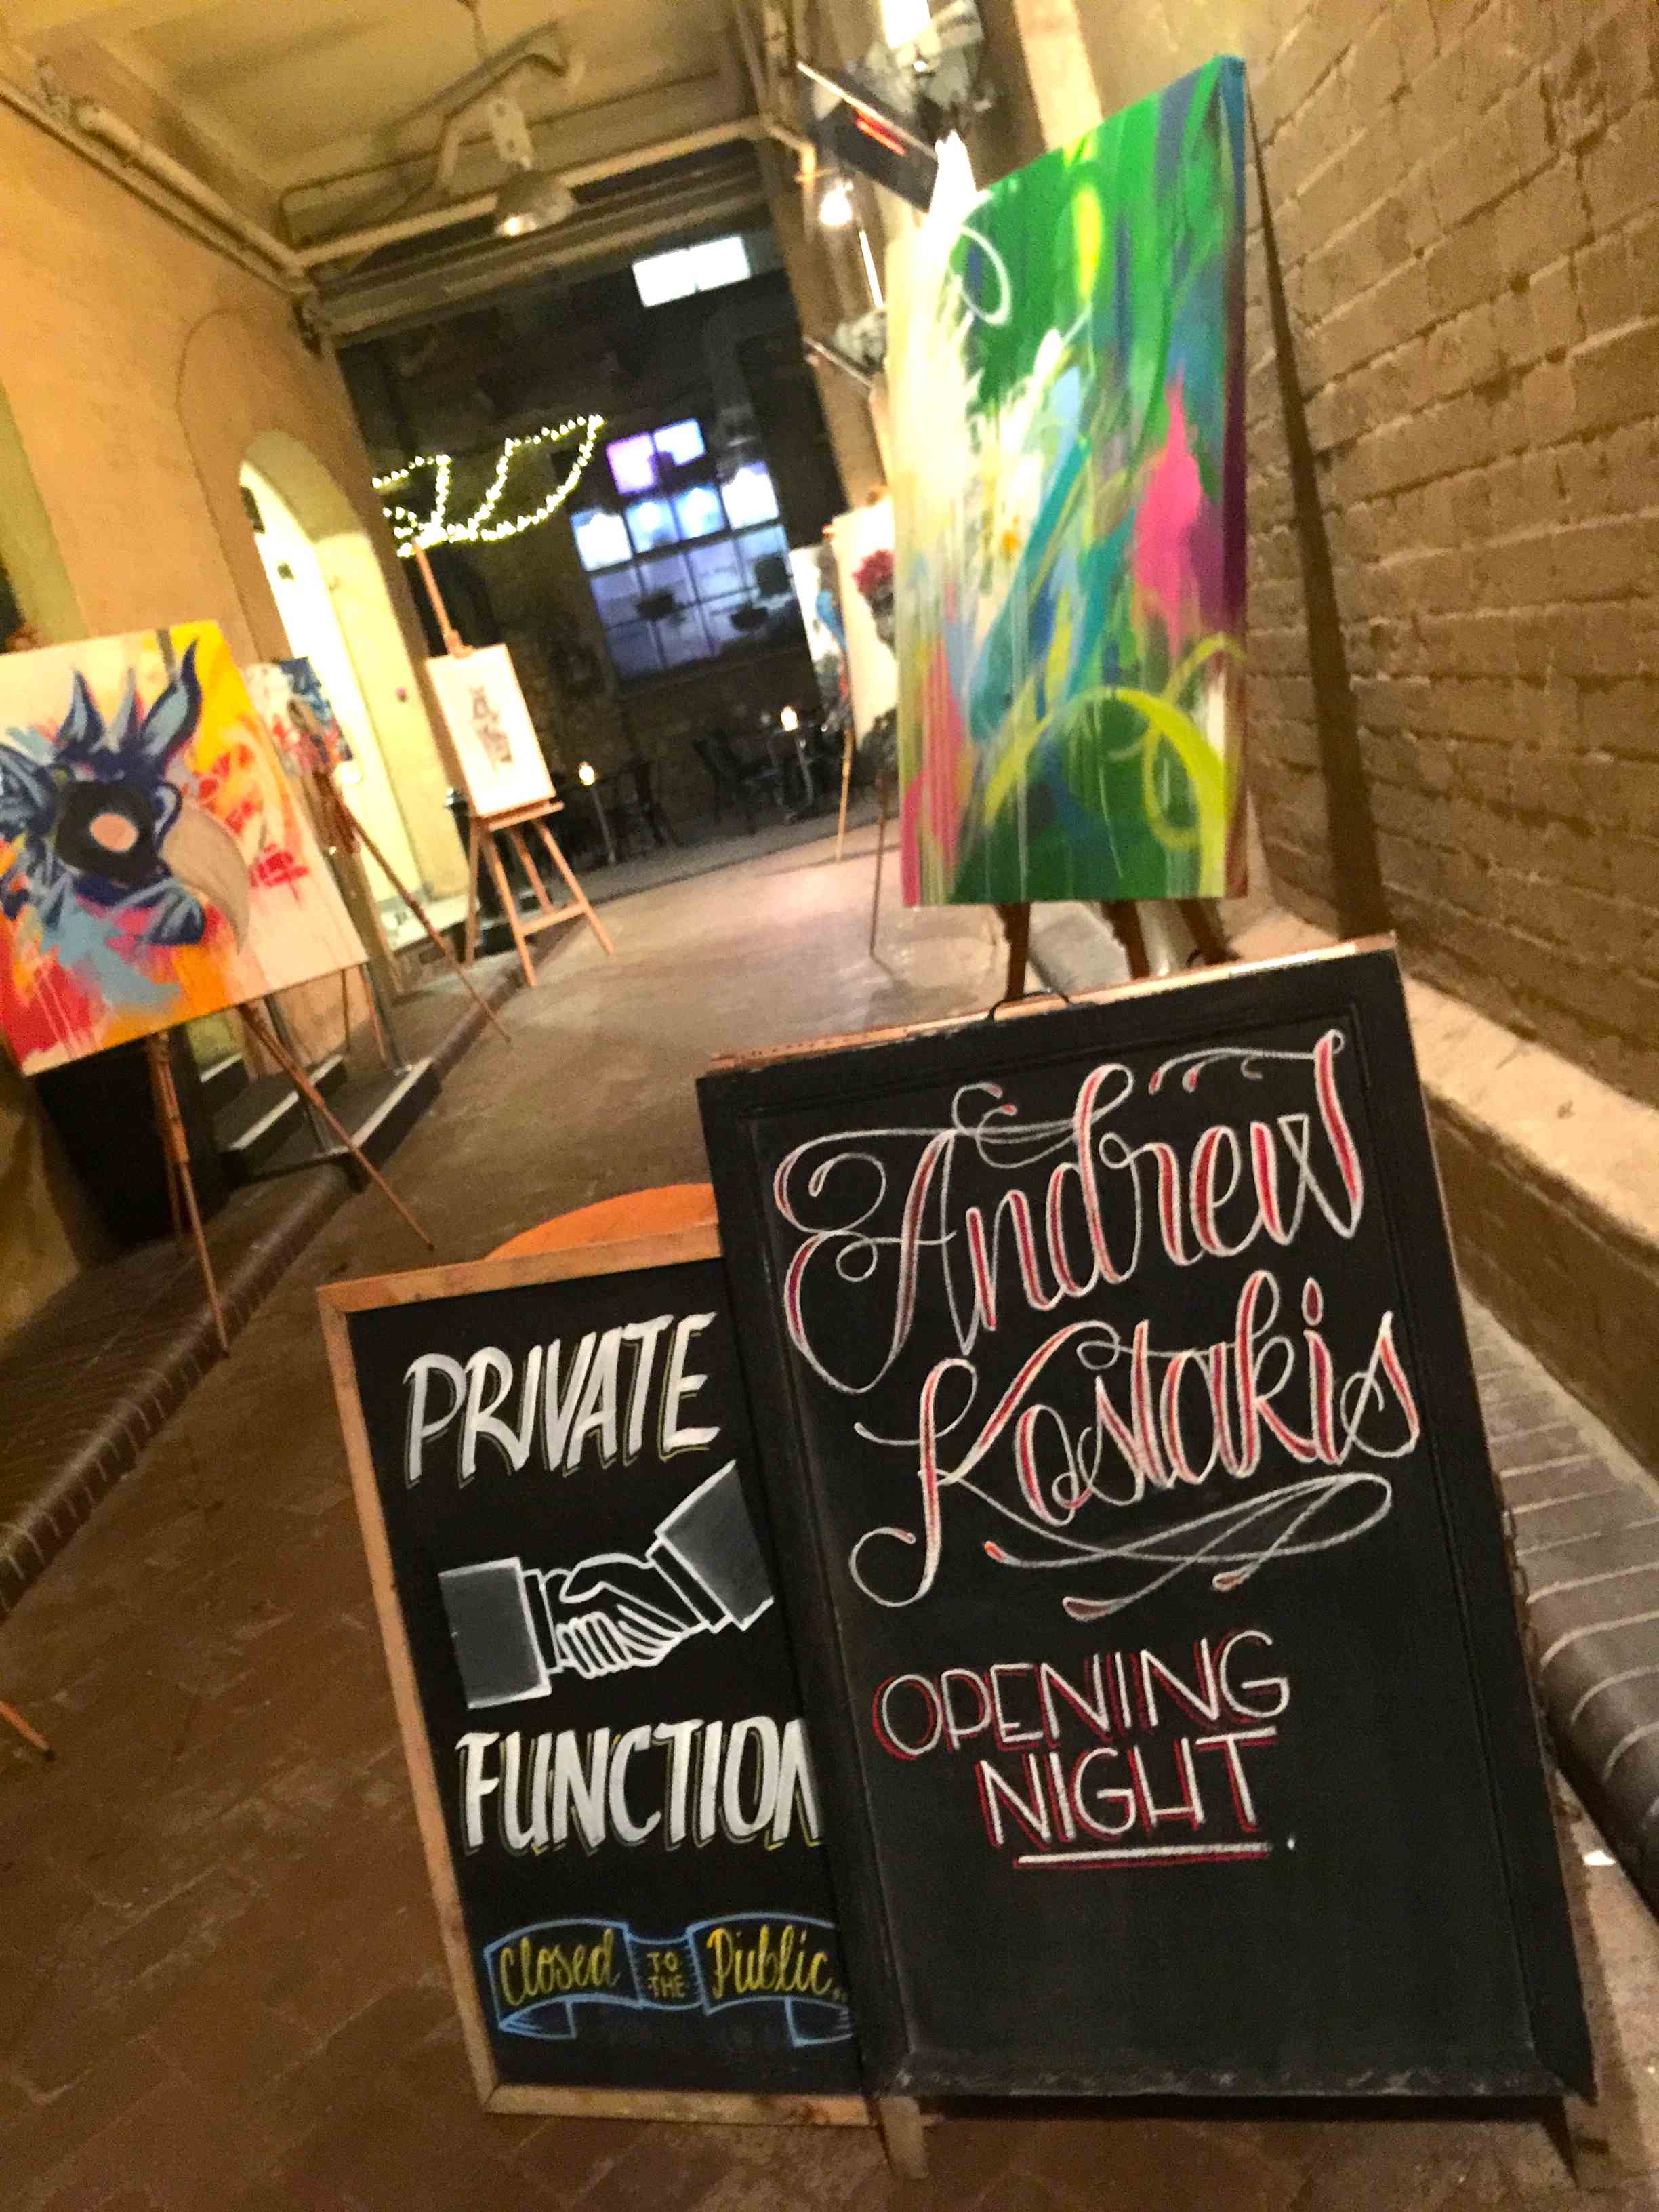 Andrew
Kostakis
OPENING
NIGHT.
PRIVATE
FUNCTION
Closed TO THE Public..